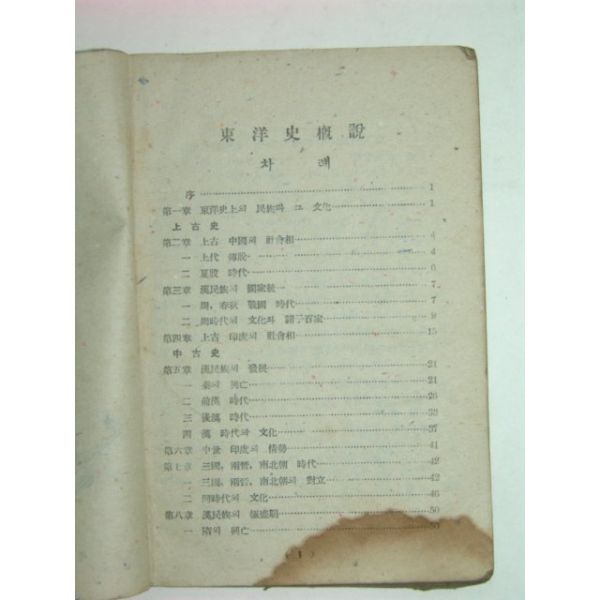 東洋史槪說
차례
序 1
第一章 東洋史上의 民族과 그 文化 1
上古史
第二章 上古 中國의 社會相 4
一 上代 傳說 4
二 夏殷 時代 6
第三章 漢民族의 國家統一 7
一 周, 春秋 戰國 時代 7
二 周時代의 文化와 諸子百家 9
第四章 上古 印度의 社會相 15
中古史
第五章 漢民族의 發展 21
一 秦의 興亡 21
二 前漢 時代 26
三 後漢 時代 32
四 漢 時代의 文化 37
第六章 中世 印度의 情勢 41
第七章 三國, 兩晋, 南北朝 時代 42
一 三國, 兩晋, 南北朝의 對立 42
二 同時代의 文化 46
第八章 漢民族의 極盛期 50
一 隋의 興亡 50
( 1 )